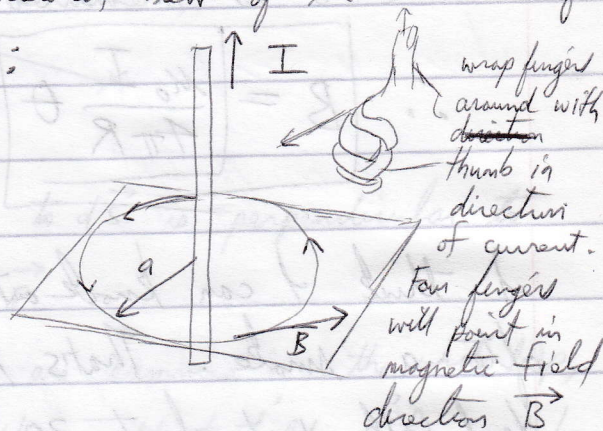 I
wrap fingers
around with
thumb in
direction
of current.
Four fingers
will point in
magnetic field
direction B
a
B